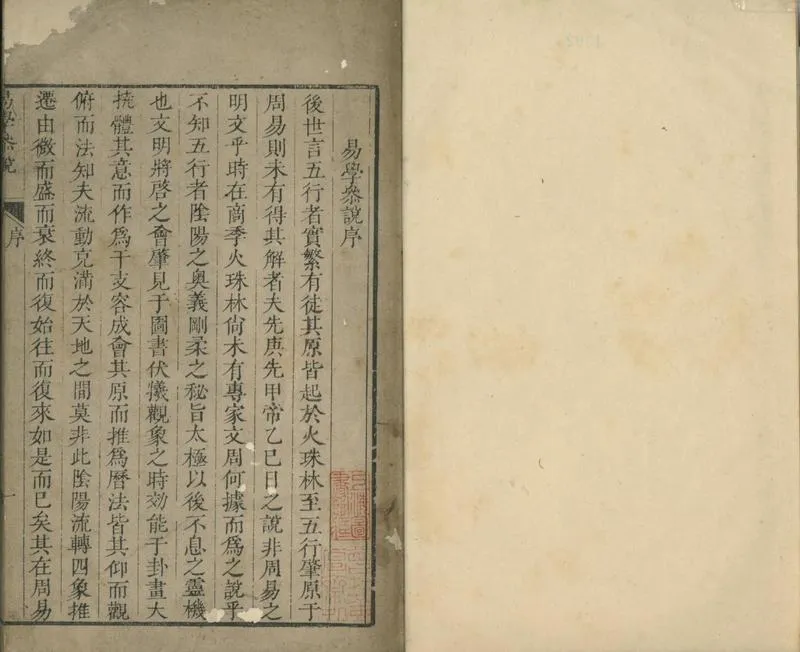 易學叅說序
後世言五行者實繁有徒其原皆起於火珠林至五行肇原于
周易則未有得其解者夫先庚先甲帝乙巳日之說非周易之
明文乎時在商季火珠林尙未有專家文周何據而爲之說乎
不知五行者陰陽之奧義剛柔之秘旨太極以後不息之靈機
也文明將啓之會肇見于圖書伏羲觀象之時効能于卦畫大
撓體其意而作爲干支容成會其原而推爲曆法皆其仰而觀
俯而法知夫流動充滿於天地之間莫非此陰陽流轉四象推
遷由微而盛而衰終而復始往而復來如是而已矣其在周易
易學叅說
序
一